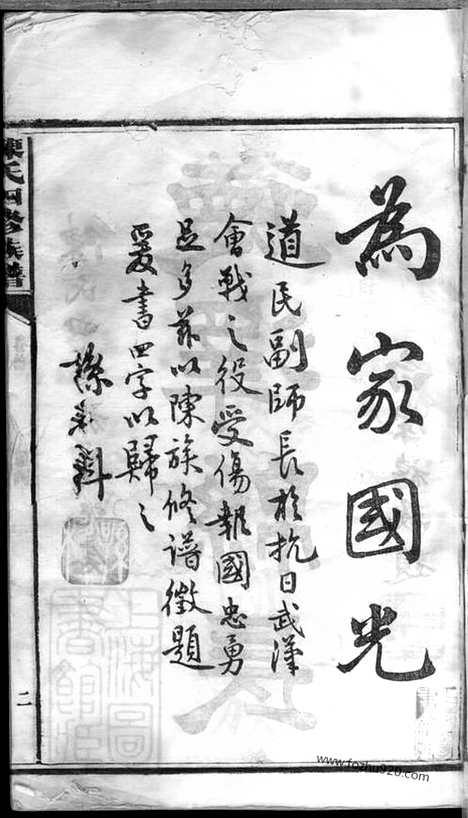 為家國光
道民副師長於抗日武漢
會戰之役受傷報國忠勇
足多茲以陳族修譜徵題
爰書四字以歸之
陳氏四修族譜
二
上海圖書館藏
www.fozhu920.com